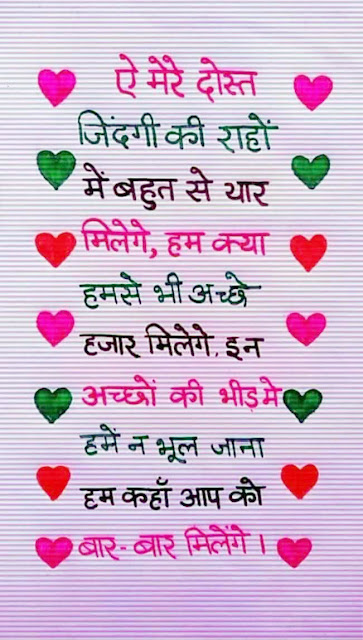 ऐ मेरे दोस्त
जिंदगी की राहों
में बहुत से यार
मिलेगे, हम क्या
हमसे भी अच्छे
हजार मिलेगे. इन
अच्छों की भीड़ मे
हमें न भूल जाना
हम कहाँ आप को
बार-बार मिलेंगे ।